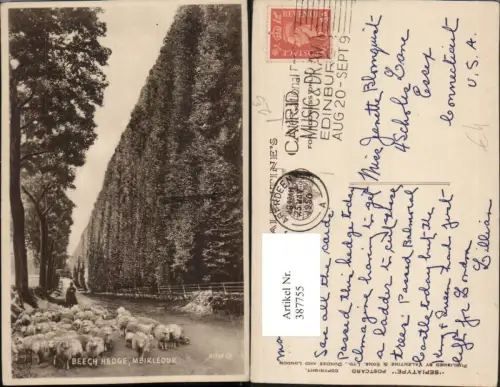 BEECH HEDGE, MEIKLEOUR
REVENUE
POSTAGE
CARD
MUSIC & DRAMA
EDINBURGH
AUG 20 - SEPT 9
ABERDEEN
Miss Jenette Blomquist
Nicholas Lane
Essex
Connecticut
U.S.A.
Save all the cards
Passed this hedge today
Imagine having to get
a ladder to cut these
trees. Passed Balmoral
Castle today but the
King & Queen had just
left for London
Lillian
"SEPIATYPE" POSTCARD
COPYRIGHT.
PUBLISHED BY VALENTINE & SONS, LTD., DUNDEE AND LONDON
Artikel Nr.
387755